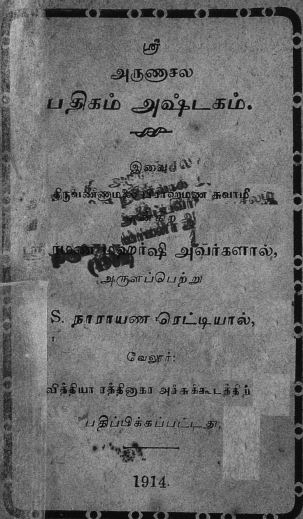 ஸ்ரீ
அருணாசல
பதிகம் அஷ்டகம்.
இவை
திருவண்ணாமலை பிராஹ்மண சுவாமி
என்கிற
ஸ்ரீ ரமண மஹர்ஷி அவர்களால்,
அருளப்பெற்று
S. நாராயண ரெட்டியால்,
வேலூர்:
வித்தியா ரத்தினாகர அச்சுக்கூடத்திற்
பதிப்பிக்கப்பட்டது
1914.